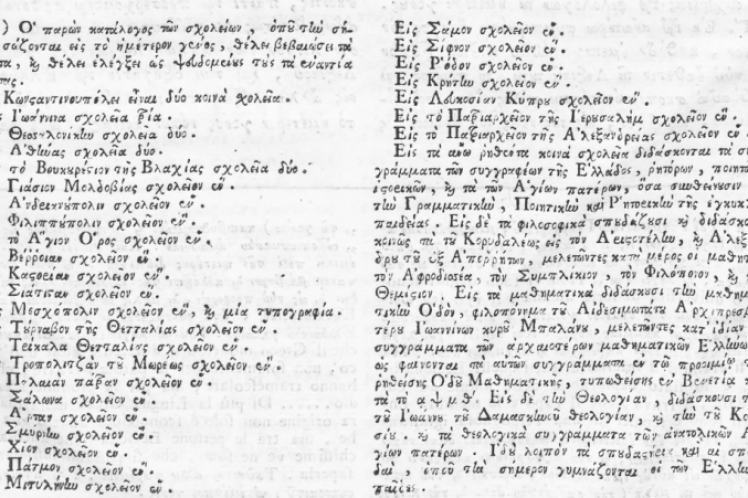 ) Ο' παρὼν κατάλογος τῶν σχολείων, ὁποῦ τώρα σή-
σώζονται εἰς τὸ ἡμέτερον γένος, θέλει βεβαιώσει τὰ
τα, ϗ θέλει ἐλέγξει ὡς ψευδομένους τοὺς τὰ ἐναντία
της.
Κωνσαντινουπόλει εἶναι δύο κοινὰ σχολεῖα.
Ι'ωάννινα σχολεῖα τρία.
Θεσσαλονίκιω σχολεῖα δύο.
Α'θήνας σχολεῖα δύο.
τὸ Βουκυρέσιον τῆς Βλαχίας σχολεῖα δύο.
Γιάσιον Μολδοβίας σχολεῖον ἕν.
Α'νδριανούπολιν σχολεῖον ἕν.
Φιλιππούπολιν σχολεῖον ἕν.
τὸ Α'γιον Ο'ρος σχολεῖον ἕν.
Βέρροιαν σχολεῖον ἕν.
Καςορίαν σχολεῖον ἕν.
Σιάτιςαν σχολεῖον ἕν.
Μοσχόπολιν σχολεῖον ἕν, ϗ μία τυπογραφία.
Τύρναβον τῆς Θετταλίας σχολεῖον ἕν.
Τρίκαλα Θετταλίας σχολεῖον ἕν.
Τροπολιτζὰν τοῦ Μωρέως σχολεῖον ἕν.
σχολεῖον ἕν.
Σάλωνα σχολεῖον ἕν.
Α'ρταν σχολεῖον ἕν.
Σμύρνιω σχολεῖον ἕν.
Χίον σχολεῖον ἕν.
Πάτμον σχολεῖον ἕν.
Μιτυλήνιω σχολεῖον ἕν
Εἰς Σάμον σχολεῖον ἕν.
Εἰς Σίφνον σχολεῖον ἕν.
Εἰς Ρ'όδον σχολεῖον ἕν.
Εἰς Κρήτιω σχολεῖον ἕν.
Εἰς Λουκοσίαν Κύπρυ σχολεῖον ἕν.
Εἰς τὸ Πατριαρχεῖον τῆς Γερυσαλὴμ σχολεῖον ἕν.
Εἰς τὸ Πατριαρχεῖον τῆς Α'λεξανδρείας σχολεῖον ἕν.
Εἰς τὰ ἄνω ῥηθέντα κοινὰ σχολεῖα διδάσκονται τὰ συ
γράμματα τῶν συγγραφέων τῆς Ε'λλάδος, ῥητόρων, ποιητ
ἱςορικῶν, ϗ τὰ τῶν Α'γίων πατέρων, ὅσα συνθείνουσιν
τὼ Γραμματικὼ, Ποιητικὼ καὶ Ρ'ητορικὼ τῆς ἐγκυκλ
παιδείας. Εἰς δὲ τὰ φιλοσοφικὰ σπυδάζυσι ϗ διδάσκο
κοινῶς τὰ τῦ Κορυδαλέως εἰς τὸν Α'ριςοτέλω, ϗ Α'λεξ
δρυ τῦ ἐξ Α'πορρήτων, μελετῶντες κατὰ μέρος οἱ μαθητ
τὸν Α'φροδισέα, τὸν Συμπλίκιον, τὸν Φιλόπονον, ϗ
Θεμίςιον. Εἰς τὰ μαθηματικὰ διδάσκυσι τὼ μαθημ
τικὼ Ο'δὸν, φιλοπόνημα τῦ Αἰδεσιμωτάτυ Α'ρχιπρεσβ
τέρυ Ι'ωαννίνων κυρῦ Μπαλάνυ, μελετῶντες κατ' ἰδίαν
συγγράμματα τῶν ἀρχαιοτέρων μαθηματικῶν Ε'λλήνω
ὡς φαίνονται τὰ αὐτῶν συγγράμματα ἐν τῷ προοιμίῳ
ῥηθείσης Ο'δῦ Μαθηματικῆς, τυπωθείσης ἐν Βενετίᾳ
τὰ τὸ α ψ μ θ'. Εἰς δὲ τὼ Θεολογίαν, διδάσκυσι τ
τῦ Ι'ωάνν τῦ Δαμασκηνῦ θεολογίαν, ϗ τὼ τῦ Κο
σίυ, ϗ τὰ θεολογικὰ συγγράμματα τῶν ἀνατολικῶν Α
γίων πατέρων. Ι'δοὺ λοιπὸν τὰ σπυδαςήρια καὶ αἱ σπυ
δαὶ, ὁποῦ τὼ σήμερον γυμνάζονται οἱ τῶν Ε'λλήνω
παῖδες.